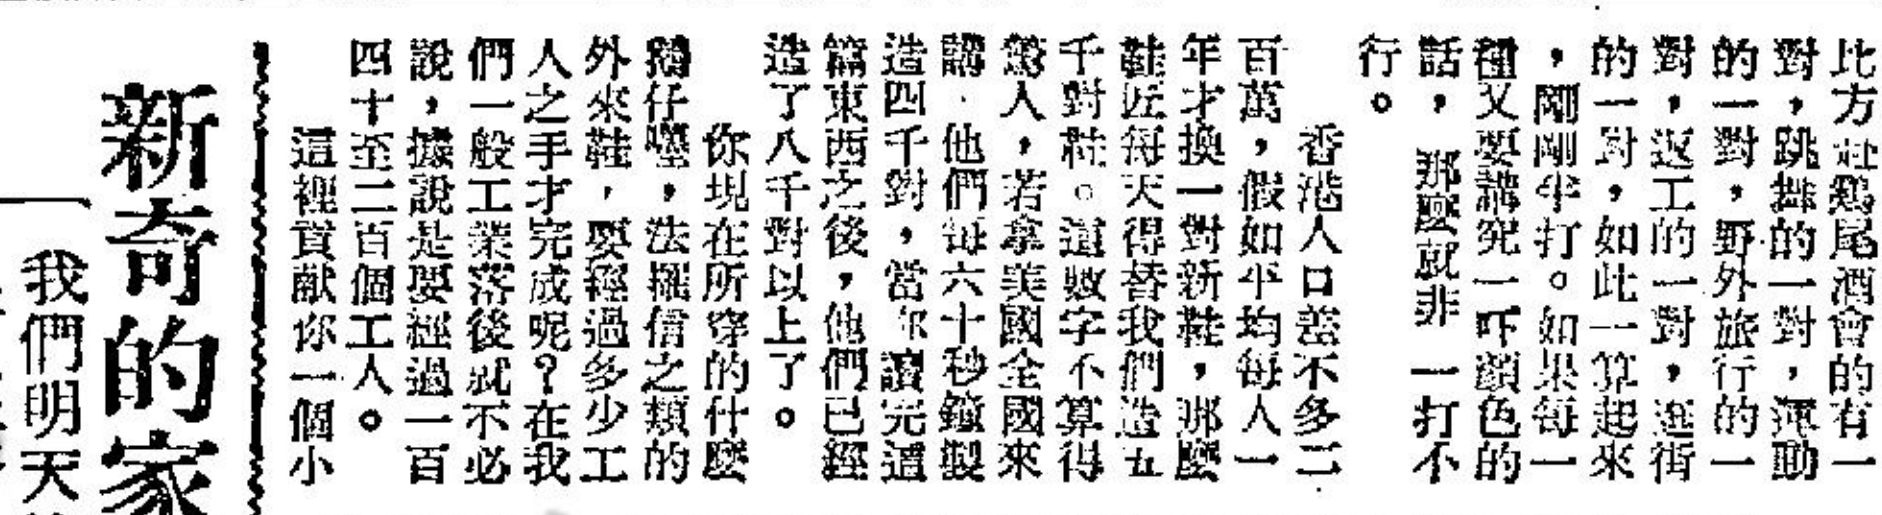 比方赴鷄尾酒會的有一
對，跳舞的一對，運動
的一對，野外旅行的一
對，返工的一對，逛街
的一對，如此一算起來
，剛剛半打。如果每一
種又要講究一吓顔色的
話，那麼就非一打不
行。
香港人口差不多二
百萬，假如平均每人一
年才換一對新鞋，那麼
鞋匠每天得替我們造五
千對鞋。這數字不算得
驚人，若拿美國全國來
講．他們每六十秒鐘製
造四千對，當你讀完這
篇東西之後，他們已經
造了八千對以上了。
你現在所穿的什麼
鵝仔嘜，法羅信之類的
外來鞋，要經過多少工
人之手才完成呢？在我
們一般工業落後就不必
說，據說是要經過一百
四十至二百個工人。
這裡貢献你一個小
新奇的家
我們明天